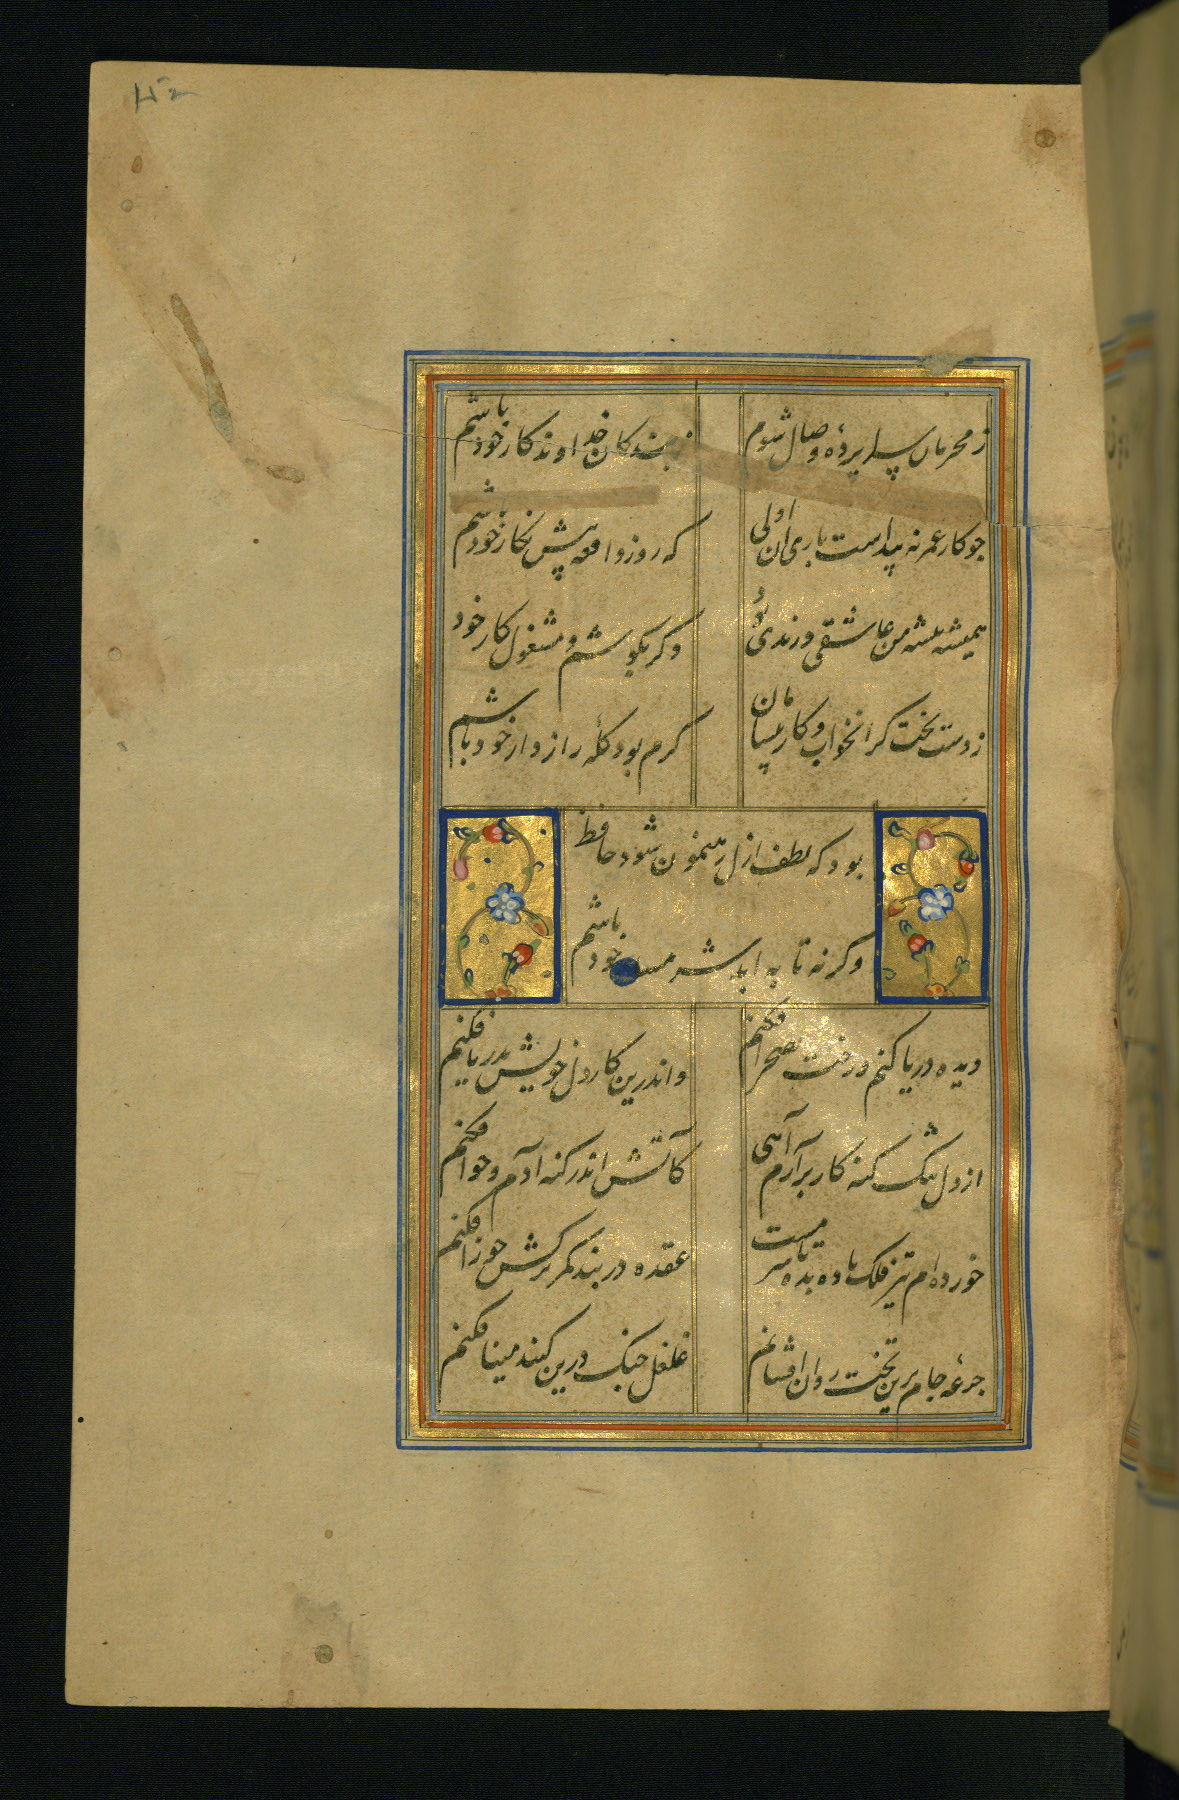 ۱۵۲
ز محرمان سراپردهٔ وصال شوم
ز بندکان خداوندکار خود باشم
چو کار عمر نه پیداست باری ان اولی
که روز واقعه پیش نکار خود باشم
همیشه پیشه من عاشقی و رندی بود
دکر بکوشم و مشغول کار خود
ز دست بخت کرانخواب و کار بیسامان
کرم بود کلهٔ رازدار خود باشم
بود که لطف ازل رهنمون شود حافظ
وکرنه تا به ابد شرمسار خود باشم
دیده دریا کنم و رخت بصحرا فکنم
واندرین کار دل خویش بدریا فکنم
از دل تنک کنه کار برآرم آهی
کآتش اندر کنه آدم و حوا فکنم
خورده‌ام تیر فلک باده بده تا سرمست
عقده در بند کمر ترکش جوزا فکنم
جرعهٔ جام برین تخت روان افشانم
غلغل چنک درین کنبد مینا فکنم